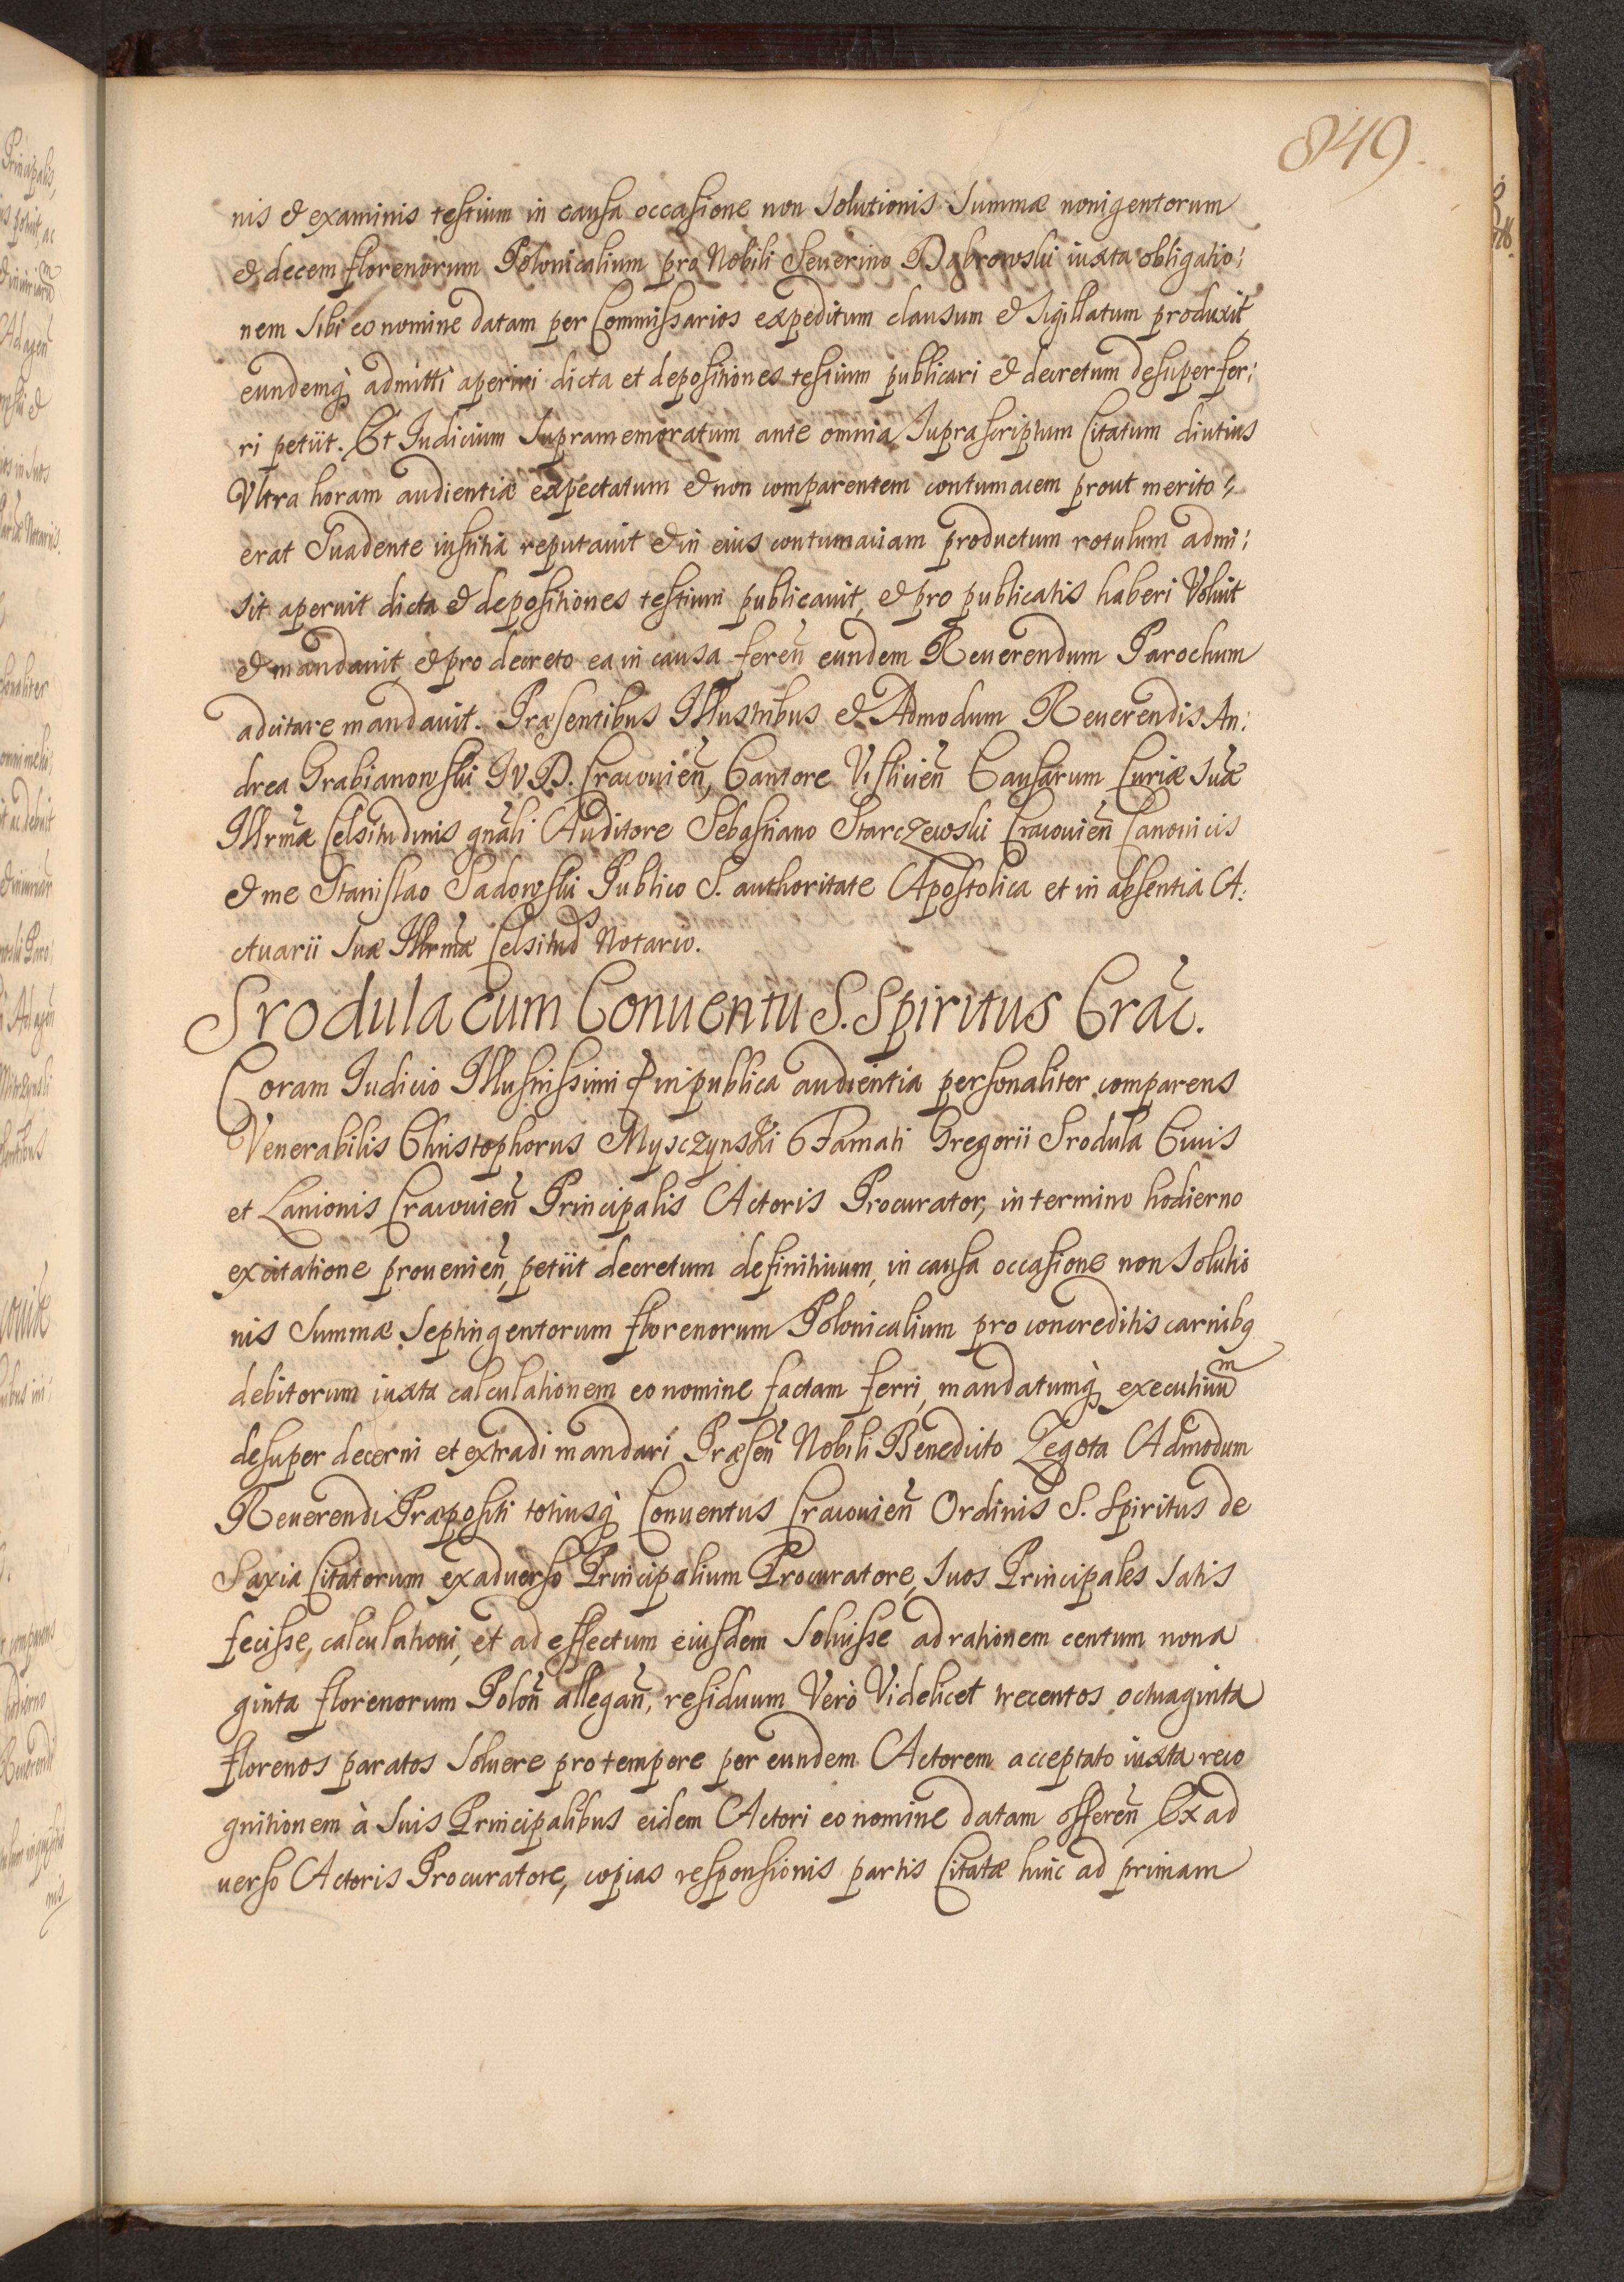 849
nis & examinis testium in causa occasione non solutionis summæ nonigentorum
& decem florenorum Polonicalium pro Nobili Seuerino Dąbrowski iuxta obligatio:
nem sibi eo nomine datam per Commissarios expeditum clausum & sigillatum produxit,
eundemq̀ admitti aperiri dicta et depositiones testium publicari & decretum desuper fer:
ri petiit. Et Iudicium supramemoratum ante omnia suprascriptum Citatum diutius
Vltra horam audientiæ expectatum & non comparentem contumacem prout merito
erat suadente iustitia reputauit & in eius contumaciam productum rotulum admi:
sit aperuit dicta & depositiones testium publicauit, & pro publicatis haberi Voluit
& mandauit, & pro decreto ea in causa feren̄ eundem Reuerendum Parochum
adcitare mandauit. Præsentibus Illustribus & Admodum Reuerendis An:
drea Grabianowski I V D. Cracouien̄, Cantore Vislicien̄ Causarum Curiæ suæ
Illrmæ Celsitudinis gnāli Auditore Sebastiano Starczewski Cracouien̄ Canonicis
& me Stanislao Sadowski Publico S. authoritate Apostolica et in absentia A:
ctuarii suæ Illrmæ Celsitud̄s Notario.
Srodula cum Conuentu S. Spiritus Crac̄.
Coram Iudicio Illustrissimi P in publica audientia personaliter comparens
Venerabilis Christophorus Mysczynski Famati Gregorii Srodula Ciuis
et Lanionis Cracouien̄ Principalis Actoris Procurator, in termino hodierno
ex citatione prouenien̄, petiit decretum definitiuum, in causa occasione non solutio
nis summæ septingentorum florenorum Polonicalium pro concreditis carnibg
debitorum iuxta calculationem eo nomine factam ferri, mandatumq̀ executiuūm
desuper decerni et extradi mandari Præsen̄ Nobili Benedicto Zegota Admodum
Reuerendi Præpositi totiusq̀ Conuentus Cracouien̄ Ordinis S. Spiritus de
Saxia Citatorum ex aduerso Principalium Procuratore, suos Principales satis
fecisse, calculationi, et ad effectum eiusdem soluisse ad rationem centum nona
ginta florenorum Polon̄ allegan̄, residuum Verò Videlicet trecentos octuaginta
florenos paratos soluere pro tempore per eundem Actorem acceptato iuxta reco
gnitionem à suis Principalibus eidem Actori eo nomine datam offeren̄ Ex ad
uerso Actoris Procuratore, copias responsionis partis Citatæ hinc ad primam